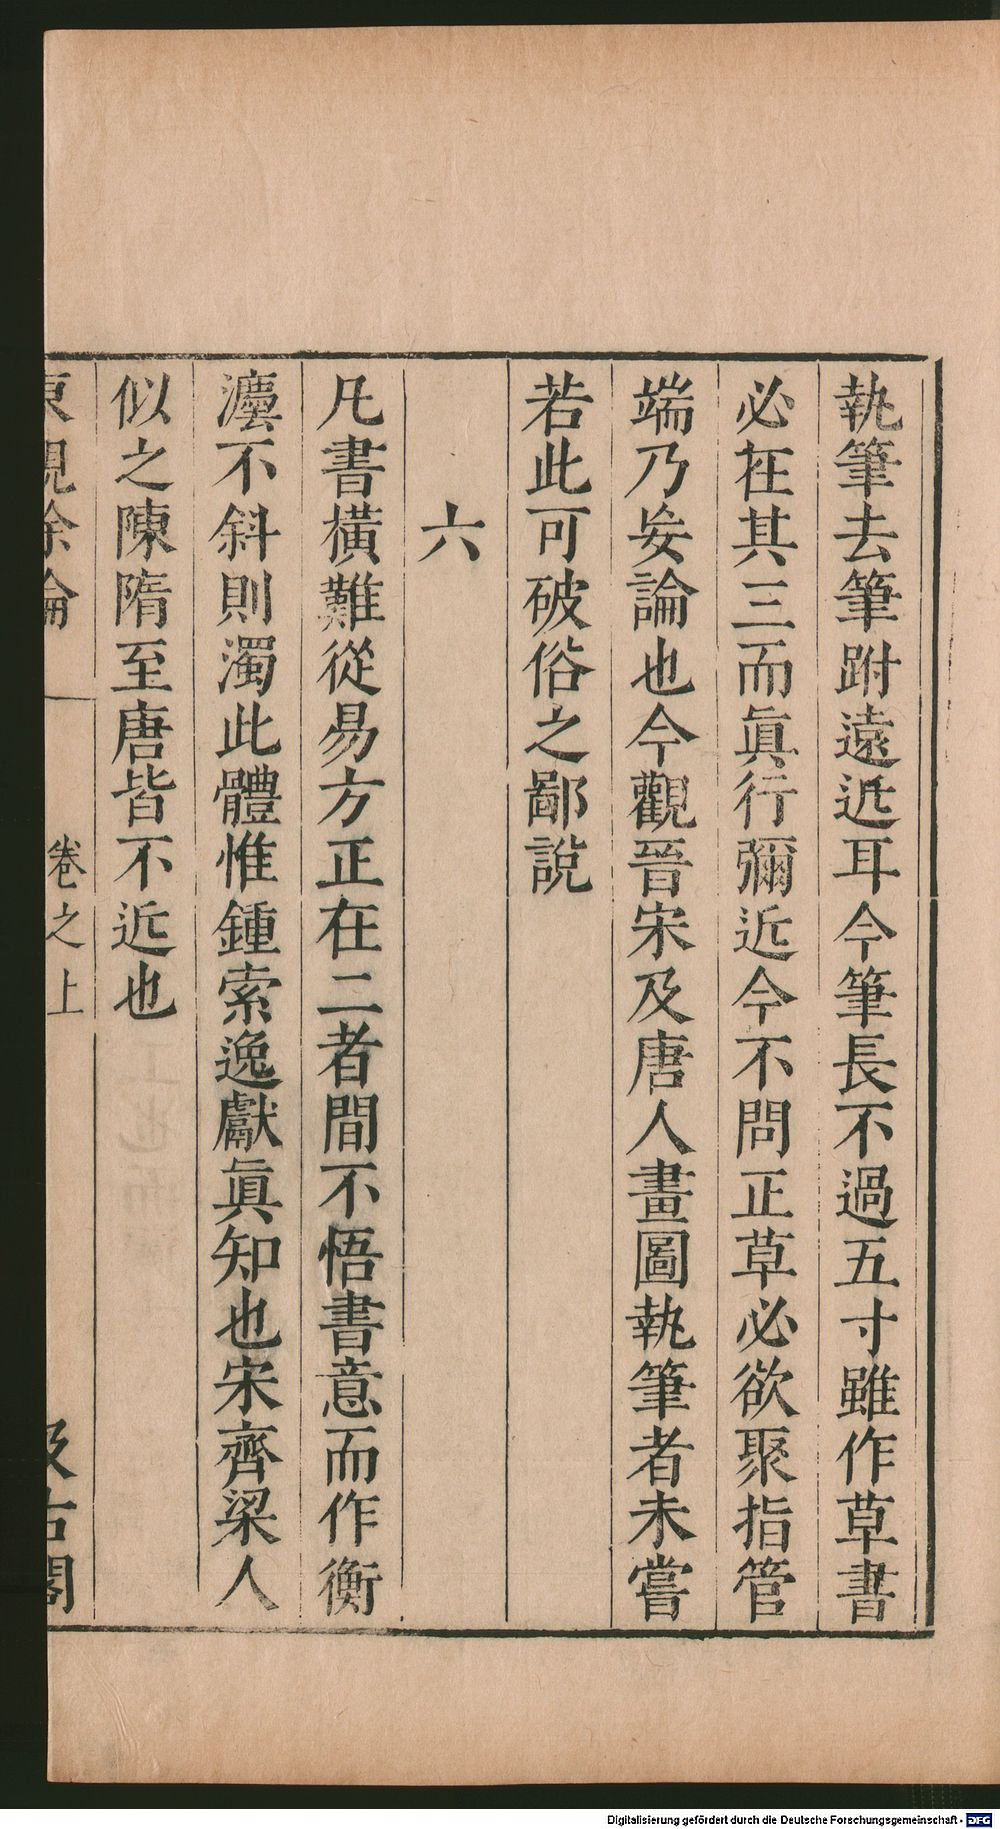 執筆去筆跗遠近耳今筆長不過五寸雖作草書
必在其三而眞行彌近今不問正草必欲聚指管
端乃妄論也今觀晉宋及唐人畫圖執筆者未嘗
若此可破俗之鄙說
六
凡書橫難從易方正在二者間不悟書意而作衡
灋不斜則濁此體惟鍾索逸獻眞知也宋齊梁人
似之陳隋至唐皆不近也
東觀余論
卷之上
汲古閣
Digitalisierung gefördert durch die Deutsche Forschungsgemeinschaft - DFG